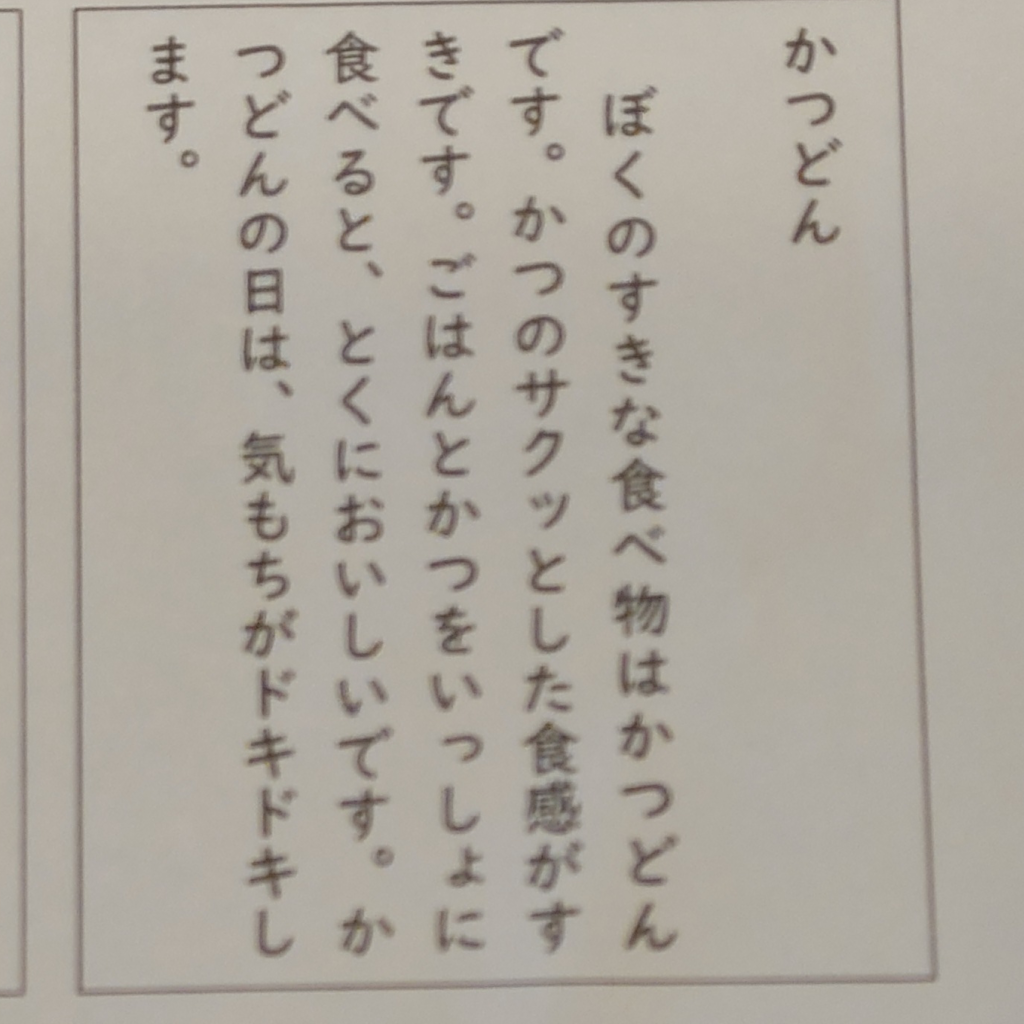 かつどん
ぼくのすきな食べ物はかつどん
です。かつのサクッとした食感がす
きです。ごはんとかつをいっしょに
食べると、とくにおいしいです。か
つどんの日は、気もちがドキドキし
ます。